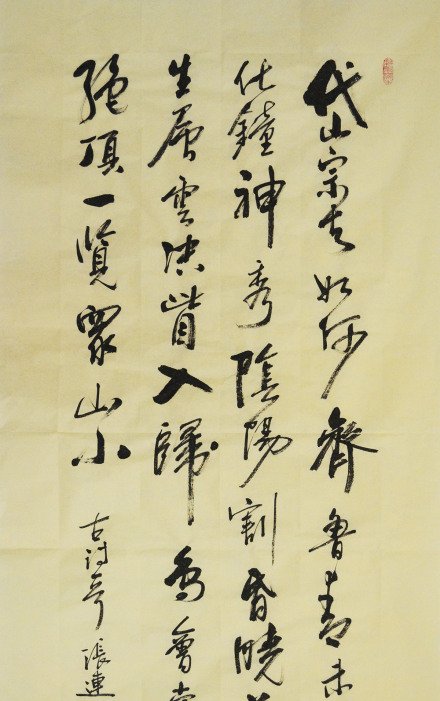 岱宗夫如何齊魯青未
化鐘神秀陰陽割昏曉
生層雲決眥入歸鳥會當
絕頂一覽眾山小
古诗 張連